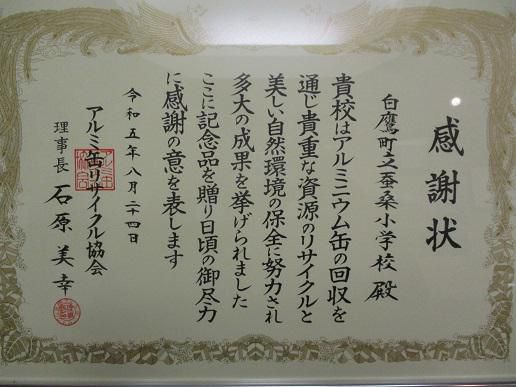 感謝状
白鷹町立蚕桑小学校 殿
貴校はアルミニウム缶の回収を
通じ貴重な資源のリサイクルと
美しい自然環境の保全に努力され
多大の成果を挙げられました
ここに記念品を贈り日頃の御尽力
に感謝の意を表します
令和五年八月二十四日
アルミ缶リサイクル協会
理事長 石原美幸